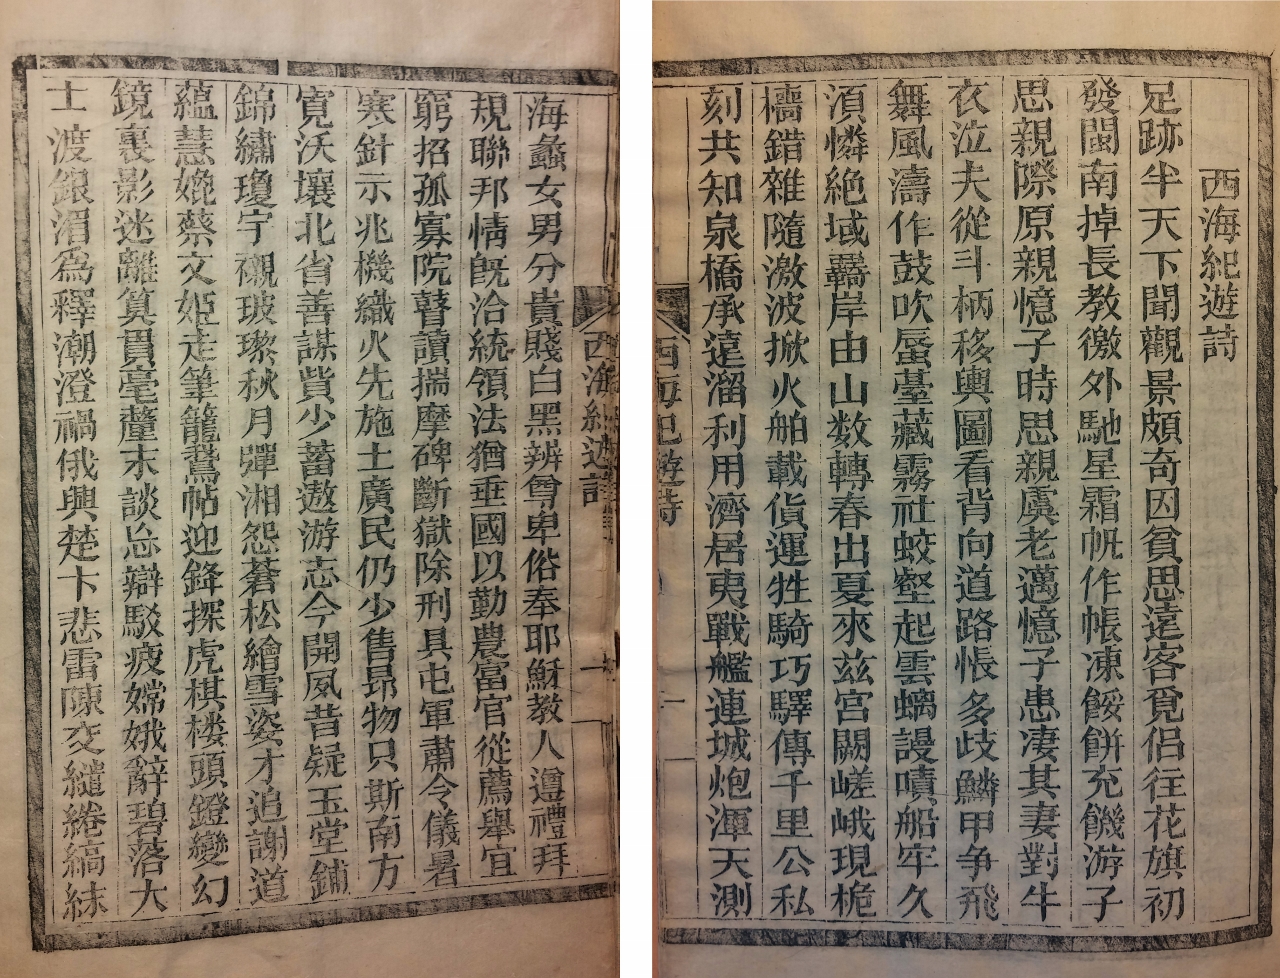 西海紀遊詩
足跡半天下聞觀景頗奇因貧思遠客覓侶往花旗初
發閩南掉長教徼外馳星霜帆作帳凍餒餅充饑游子
思親際原親憶子時思親虞老邁憶子患凄其妻對牛
衣泣夫從斗柄移輿圖看背向道路悵多歧鱗甲争飛
舞風濤作鼓吹蜃臺藏霧社蛟壑起雲螭謾嘖船牢久
湏憐絶域羈岸由山数轉春出夏來兹宮闕嵯峨現桅
檣錯雜隨激波掀火舶載貨運牲騎巧驛傳千里公私
刻共知泉橋承遠溜利用濟居夷戰艦連城炮渾天測
西海紀遊詩
一
海蠡女男分貴賤白黑辨尊卑俗奉耶穌教人遵禮拜
規聯邦情旣洽統領法猶垂國以勤農富官從薦舉宜
窮招孤寡院瞽讀揣摩碑斷獄除刑具屯軍肅令儀暑
寒針示兆機織火先施土廣民仍少售昻物只斯南方
寛沃壤北省善謀貲少蓄遨游志今開夙昔疑玉堂鋪
錦繡瓊宇襯玻瓈秋月彈湘怨蒼松繪雪姿才追謝道
蘊慧媲蔡文姬走筆籠鵞帖迎鋒探虎棋楼頭鐙變幻
鏡裏影迷離算貫毫釐末談忩辯駁疲嫦娥辭碧落大
士渡銀湄爲釋潮澄禍俄興楚卞悲雷陳交繾綣縞紵